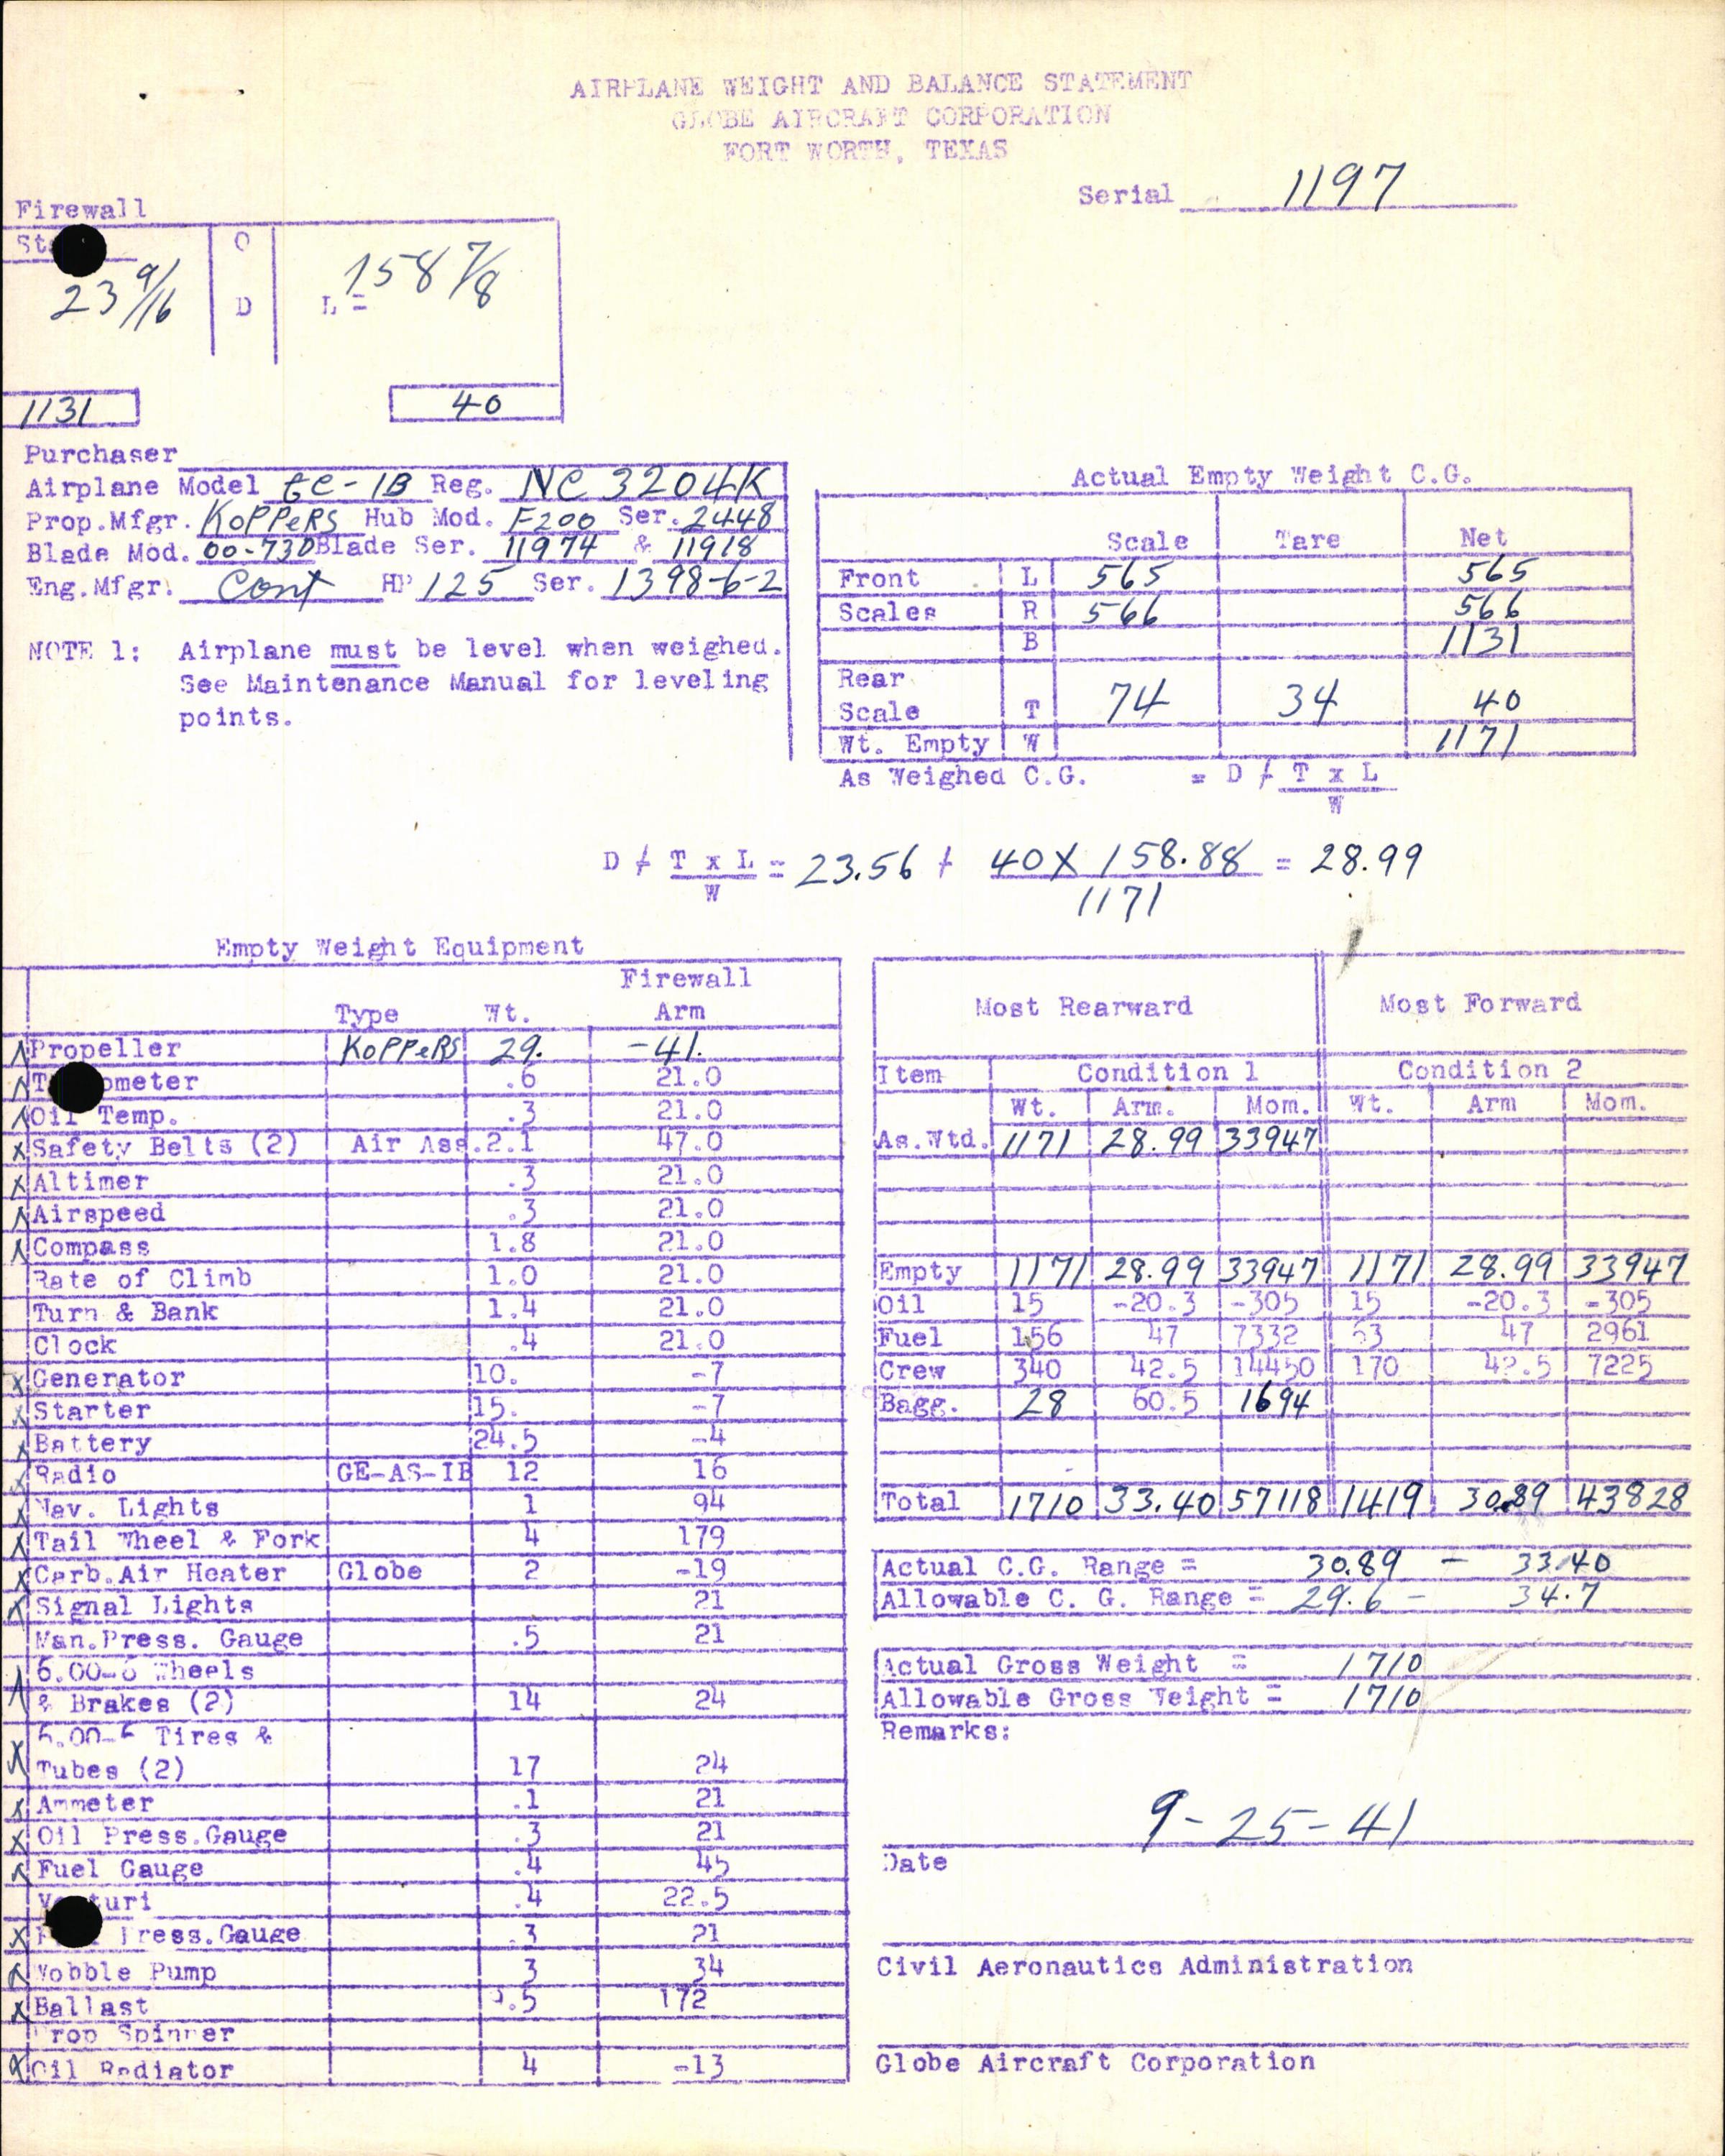 AIRPLANE WEIGHT AND BALANCE STATEMENT
GLOBE AIRCRAFT CORPORATION
FORT WORTH, TEXAS
Serial 1197
Firewall
23 9/16 O D L = 158 7/8
1131 40
Purchaser
Airplane Model GC-1B Reg. NC 3204K
Prop.Mfgr. KOPPERS Hub Mod. F200 Ser. 2448
Blade Mod. 00-73D Blade Ser. 11974 & 11918
Eng.Mfgr. Cont HP 125 Ser. 1398-6-2
NOTE 1: Airplane must be level when weighed.
See Maintenance Manual for leveling
points.
Actual Empty Weight C.G.
Scale Tare Net
Front L 565 565
Scales R 566 566
B 1131
Rear
Scale T 74 34 40
Wt. Empty W 1171
As Weighed C.G. = D + T x L
W
D + T x L = 23.56 + 40 X 158.88 = 28.99
W 1171
Empty Weight Equipment
Firewall
Type Wt. Arm
X Propeller KOPPERS 29. -41.
X .6 21.0
X Oil Temp. .3 21.0
X Safety Belts (2) Air Ass. 2.1 47.0
X Altimer .3 21.0
X Airspeed .3 21.0
X Compass 1.8 21.0
Rate of Climb 1.0 21.0
Turn & Bank 1.4 21.0
Clock .4 21.0
X Generator 10. -7
X Starter 15. -7
X Battery 24.5 -4
X Radio GE-AS-1B 12 16
X Nav. Lights 1 94
X Tail Wheel & Fork 4 179
X Carb.Air Heater Globe 2 -19
X Signal Lights 21
Man.Press. Gauge .5 21
X 6.00-6 Wheels
& Brakes (2) 14 24
X 6.00-6 Tires &
Tubes (2) 17 24
X Ammeter .1 21
X Oil Press.Gauge .3 21
X Fuel Gauge .4 45
.4 22.5
X Press.Gauge .3 21
X Wobble Pump 3 34
X Ballast 172
Prop Spinner
X Oil Radiator 4 -13
Most Rearward Most Forward
Item Condition 1 Condition 2
Wt. Arm. Mom. Wt. Arm Mom.
As.Wtd. 1171 28.99 33947
Empty 1171 28.99 33947 1171 28.99 33947
Oil 15 -20.3 -305 15 -20.3 -305
Fuel 156 47 7332 63 47 2961
Crew 340 42.5 14450 170 42.5 7225
Bagg. 28 60.5 1694
Total 1710 33.40 57118 1419 30.89 43828
Actual C.G. Range = 30.89 - 33.40
Allowable C. G. Range = 29.6 - 34.7
Actual Gross Weight = 1710
Allowable Gross Weight = 1710
Remarks:
9-25-41
Date
Civil Aeronautics Administration
Globe Aircraft Corporation